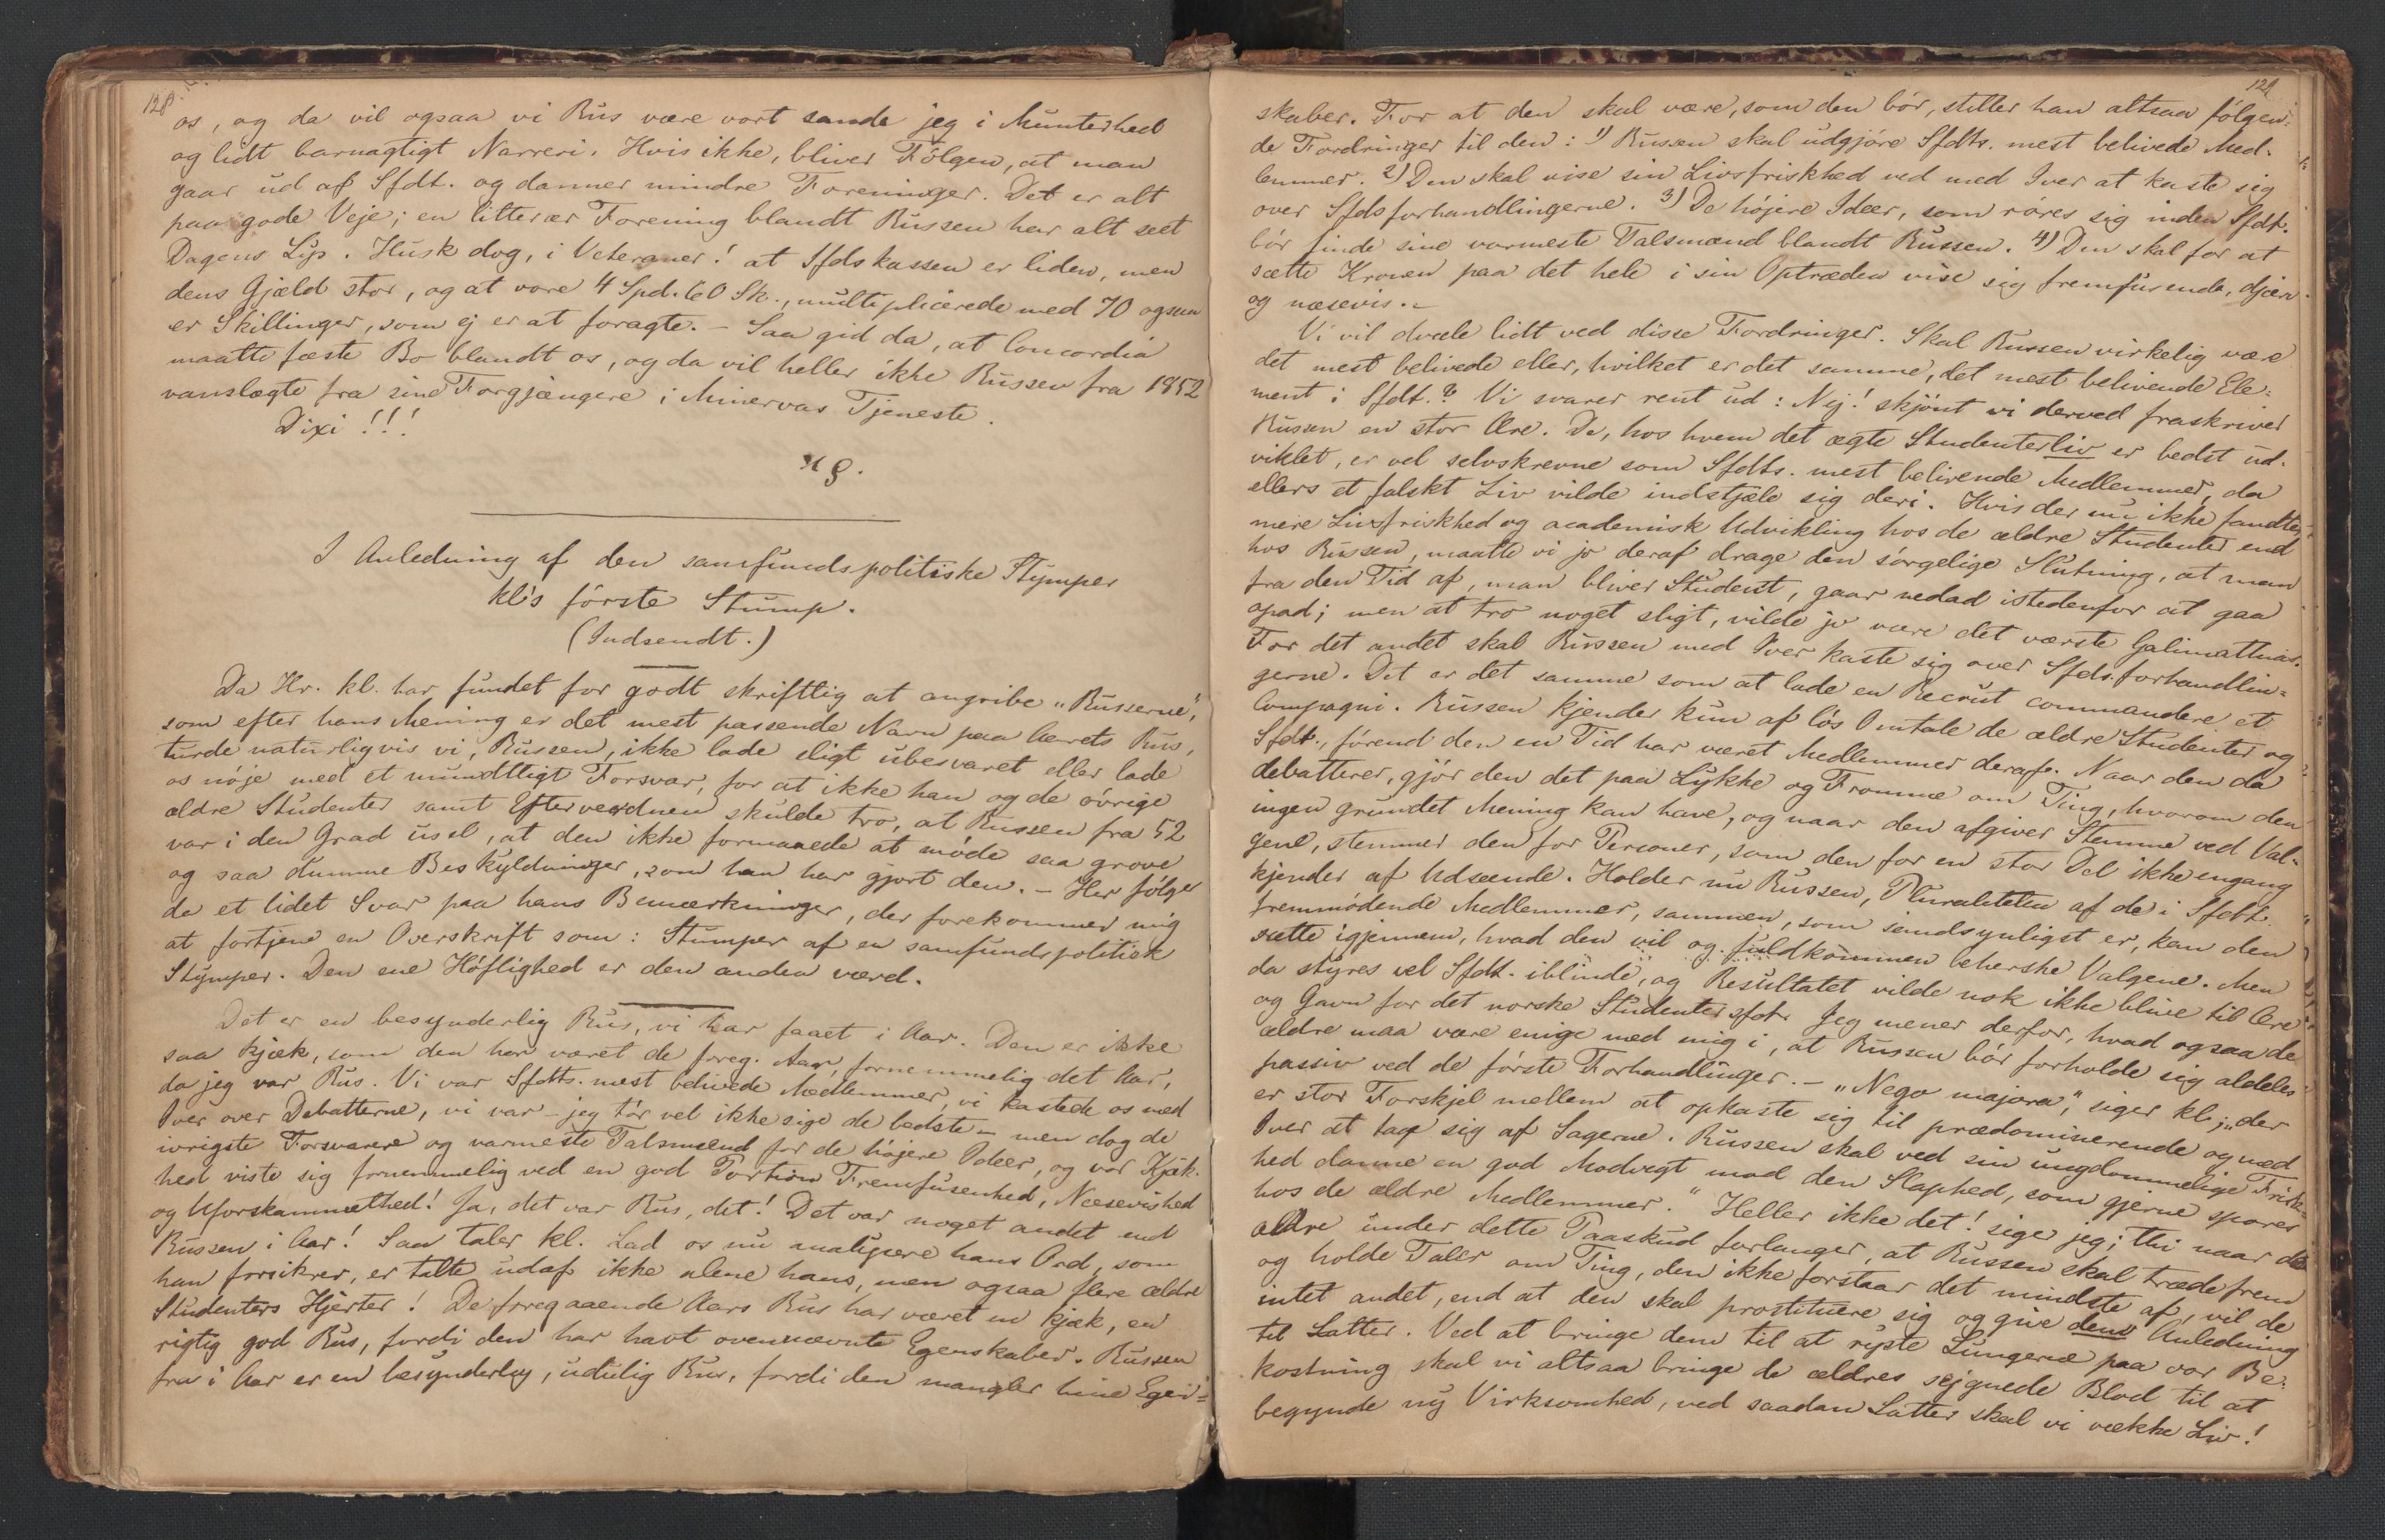 128
os, og da vil ogsaa vi Rus være vort sande jeg i Munterhed
og lidt barnagtigt Narreri. Hvis ikke, bliver Følgen, at man
gaar ud af Sfdt. og danner mindre Foreninger. Det er alt
paa gode Veje; en litterær Forening blandt Russen har alt seet
Dagens Lys. Husk dog, i Veteraner! at Sfdskassen er liden, men
dens Gjæld stor, og at vore 4 Spd. 60 Sk., multiplicerede med 70 ogsaa
er Skillinger, som ej er at foragte. – Saa gid da, at Concordia
maatte fæste Bo blandt os, og da vil heller ikke Russen fra 1852
vanslægte fra sine Forgjængere i Minervas Tjeneste.
Dixi!!!
I Anledning af den samfundspolitiske Stymper
kl's første Stump.
(Indsendt.)
Da Hr. kl. har fundet for godt skriftlig at angribe „Russerne",
som efter hans Mening er det mest passende Navn paa Aarets Rus,
turde naturligvis vi, Russen, ikke lade sligt ubesvaret eller lade
os nøje med et mundtligt Forsvar, for at ikke han og de øvrige
ældre Studenter samt Efterverdnen skulde tro, at Russen fra 52
var i den Grad usel, at den ikke formaaede at møde saa grove
og saa dumme Beskyldninger, som han har gjort den. – Her følger
da et lidet Svar paa hans Bemærkninger, der forekommer mig
at fortjene en Overskrift som: Stumper af en samfundspolitisk
Stymper. Den ene Høflighed er den anden værd.
Det er en besynderlig Rus, vi har faaet i Aar. Den er ikke
saa kjæk, som den har været de foreg. Aar, fornemmelig det Aar,
da jeg var Rus. Vi var Sfdts. mest belivede Medlemmer, vi kastede os med
Iver over Debatterne, vi var – jeg tør vel ikke sige de bedste – men dog de
ivrigste Forsvarere og varmeste Talsmænd for de højere Ideer, og vor Kjæk-
hed viste sig fornemmelig ved en god Portion Fremfusenhed, Næsevished
og Uforskammethed! Ja, det var Rus, det! Det var noget andet end
Russen i Aar! Saa taler kl. Lad os nu analysere hans Ord, som
han forsikrer, er talte udaf ikke alene hans, men ogsaa flere ældre
Studenters Hjerter! De foregaaende Aars Rus har været en kjæk, en
rigtig god Rus, fordi den har havt ovennævnte Egenskaber. Russen
fra i Aar er en besynderlig, udulig Rus, fordi den mangler hine Egen=
129
skaber. For at den skal være, som den bør, stiller han altsaa følgen=
de Fordringer til den: 1) Russen skal udgjøre Sfdts. mest belivede Med-
lemmer. 2) Den skal vise sin Livsfriskhed ved med Iver at kaste sig
over Sfdsforhandlingerne. 3) De højere Ideer, som røres sig inden Sfdt.
bør finde sine varmeste Talsmænd blandt Russen. 4) Den skal for at
sætte Kronen paa det hele i sin Optræden vise sig fremfusende, djærv
og næsevis. –
Vi vil dvæle lidt ved disse Fordringer. Skal Russen virkelig være
det mest belivede eller, hvilket er det samme, det mest belivende Ele=
ment i Sfdt.? Vi svarer rent ud: Nej! skjønt vi derved fraskriver
Russen en stor Ære. De, hos hvem det ægte Studenterliv er bedst ud-
viklet, er vel selvskrevne som Sfdts. mest belivende Medlemmer, da
ellers et falskt Liv vilde indstjæle sig deri. Hvis der nu ikke fandtes
mere Livsfriskhed og academisk Udvikling hos de ældre Studenter end
hos Russen, maatte vi jo deraf drage den sørgelige Slutning, at man
fra den Tid af, man bliver Student, gaar nedad istedenfor at gaa
opad; men at tro noget sligt, vilde jo være det værste Galimathias.
For det andet skal Russen med Iver kaste sig over Sfdsforhandlin=
gerne. Det er det samme som at lade en Recrut commandere et
Compagni. Russen kjender kun af løs Omtale de ældre Studenter og
Sfdt., førend den en Tid har været Medlemmer deraf. Naar den da
debatterer, gjør den det paa Lykke og Fromme om Ting, hvorom den
ingen grundet Mening kan have, og naar den afgiver Stemme ved Val-
gene, stemmer den for Personer, som den for en stor Del ikke engang
kjender af Udseende. Holder nu Russen, Pluraliteten af de i Sfdt.
fremmødende Medlemmer, sammen, som sandsynligst er, kan den
sætte igjennem, hvad den vil og fuldkommen beherske Valgene. Men
da styres vel Sfdt. iblinde, og Resultatet vilde nok ikke blive til Ære
og Gavn for det norske Studentersfdt. Jeg mener derfor, hvad ogsaa de
ældre maa være enige med mig i, at Russen bør forholde sig aldeles
passiv ved de første Forhandlinger. – „Nego majora", siger kl.; „der
er stor Forskjel mellem at opkaste sig til prædominerende og med
Iver at tage sig af Sagerne. Russen skal ved sin ungdommelige Frisk-
hed danne en god Modvegt mod den Slaphed, som gjerne sporer
hos de ældre Medlemmer." Heller ikke det! siger jeg; thi naar de
ældre under dette Paaskud forlanger, at Russen skal træde frem
og holde Taler om Ting, den ikke forstaar det mindste af, vil de
intet andet, end at den skal prostituere sig og give dem Anledning
til Latter. Ved at bringe dem til at ryste Lungerne paa vor Be-
kostning skal vi altsaa bringe de ældres sejgnede Blod til at
begynde ny Virksomhed, ved saadan Latter skal vi vække Liv!